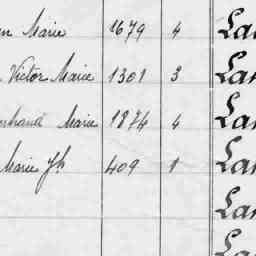 Marie 1679 4 La
Victor Marie 1301 3 La
Marie 1874 4 La
Marie Jh 409 1 La
La
La